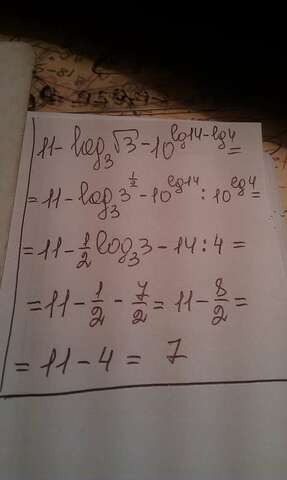 11-log₃√3-10^(lg14-lg4)=
=11-log₃3^(1/2)-10^(lg14):10^(lg4)=
=11-1/2log₃3-14:4=
=11-1/2-7/2=11-8/2=
=11-4=7